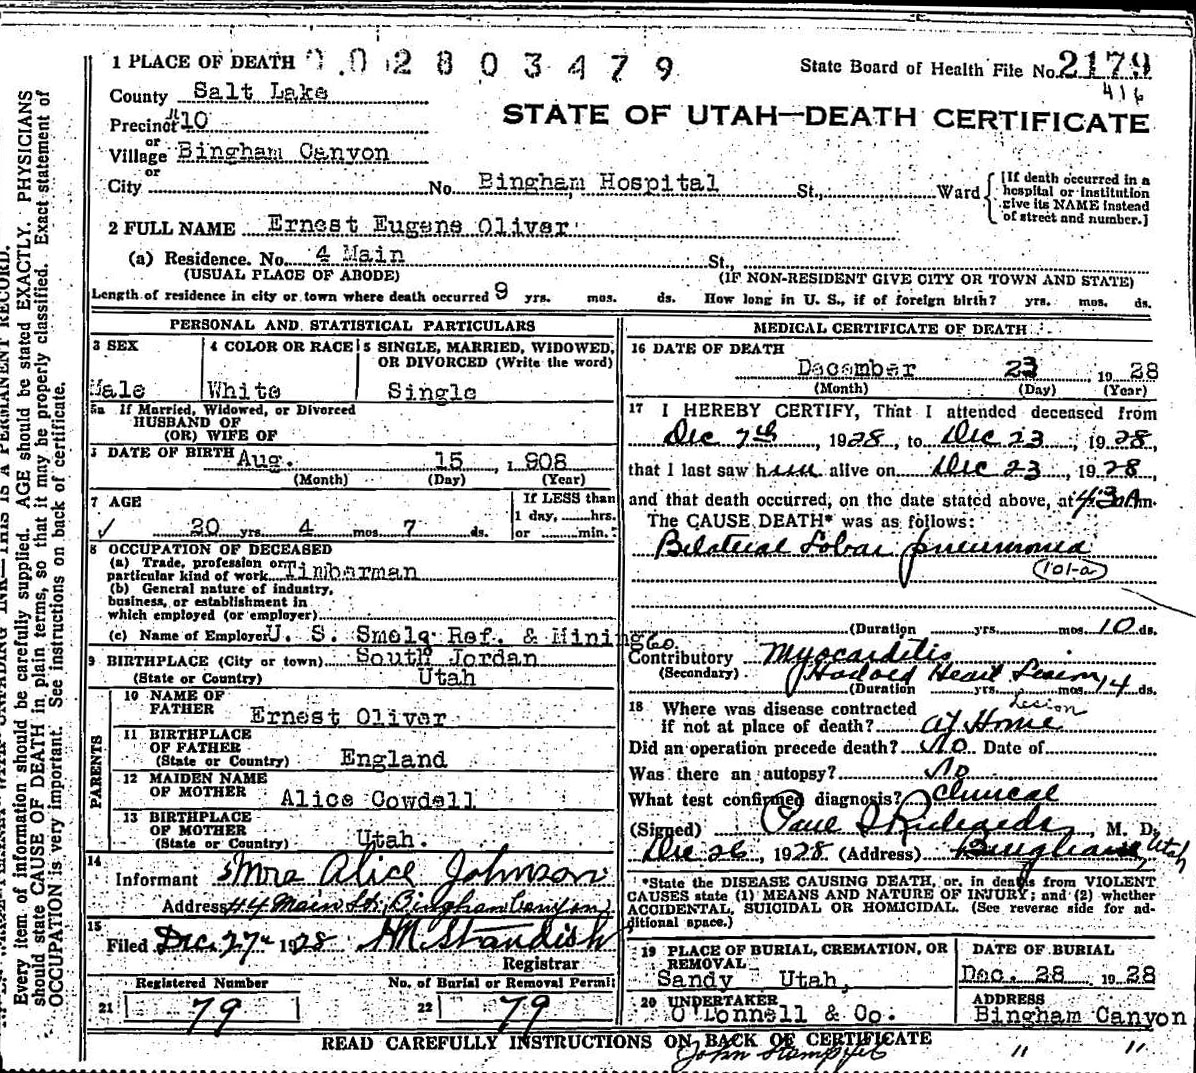 1 PLACE OF DEATH 0 0 2 8 0 3 4 7 9
State Board of Health File No. 2179
416
County Salt Lake
STATE OF UTAH—DEATH CERTIFICATE
Precinct #10
or
Village Bingham Canyon
or
City No. Bingham Hospital St., Ward
[If death occurred in a hospital or institution give its NAME instead of street and number.]
2 FULL NAME Ernest Eugene Oliver
(a) Residence. No. 4 Main St.,
(USUAL PLACE OF ABODE) (IF NON-RESIDENT GIVE CITY OR TOWN AND STATE)
Length of residence in city or town where death occurred 9 yrs. mos. ds. How long in U. S., if of foreign birth? yrs. mos. ds.
PERSONAL AND STATISTICAL PARTICULARS
3 SEX 4 COLOR OR RACE 5 SINGLE, MARRIED, WIDOWED,
OR DIVORCED (Write the word)
Male White Single
5a If Married, Widowed, or Divorced
HUSBAND OF
(OR) WIFE OF
DATE OF BIRTH Aug. 15, 1908
(Month) (Day) (Year)
7 AGE If LESS than
1 day, hrs.
20 yrs. 4 mos. 7 ds. or min.
8 OCCUPATION OF DECEASED
(a) Trade, profession or
particular kind of work Timberman
(b) General nature of industry,
business, or establishment in
which employed (or employer)
(c) Name of Employer U. S. Smelg Ref. & Mining Co.
9 BIRTHPLACE (City or town) South Jordan
(State or Country) Utah
PARENTS
10 NAME OF
FATHER Ernest Oliver
11 BIRTHPLACE
OF FATHER
(State or Country) England
12 MAIDEN NAME
OF MOTHER Alice Cowdell
13 BIRTHPLACE
OF MOTHER
(State or Country) Utah.
14
Informant Mrs Alice Johnson
Address 44 Main St. Bingham Canyon
15
Filed Dec. 27 1928 HM Standish
Registrar
Registered Number No. of Burial or Removal Permit
21 79 22 79
MEDICAL CERTIFICATE OF DEATH
16 DATE OF DEATH
December 23 1928
(Month) (Day) (Year)
17 I HEREBY CERTIFY, That I attended deceased from
Dec 7th, 1928, to Dec 23, 1928,
that I last saw him alive on Dec 23, 1928,
and that death occurred, on the date stated above, at 4:30 A m.
The CAUSE DEATH* was as follows:
Bilateral Lobar pneumonia
101-a
(Duration yrs. mos. 10 ds.
Contributory Myocarditis
(Secondary) Heart Lesion
(Duration yrs. mos. 14 ds.
Lesion
18 Where was disease contracted
if not at place of death? at Home
Did an operation precede death? No Date of
Was there an autopsy? No
What test confirmed diagnosis? Clinical
(Signed) Paul S Richards, M. D.
Dec 26, 1928 (Address) Bingham, Utah
*State the DISEASE CAUSING DEATH, or, in deaths from VIOLENT
CAUSES state (1) MEANS AND NATURE OF INJURY; and (2) whether
ACCIDENTAL, SUICIDAL OR HOMICIDAL. (See reverse side for ad-
ditional space.)
19 PLACE OF BURIAL, CREMATION, OR
REMOVAL
Sandy Utah,
DATE OF BURIAL
Dec. 28 1928
20 UNDERTAKER
O'Donnell & Co.
ADDRESS
Bingham Canyon
READ CAREFULLY INSTRUCTIONS ON BACK OF CERTIFICATE
John " "
Every item of information should be carefully supplied. AGE should be stated EXACTLY. PHYSICIANS
should state CAUSE OF DEATH in plain terms, so that it may be properly classified. Exact statement of
OCCUPATION is very important. See instructions on back of certificate.